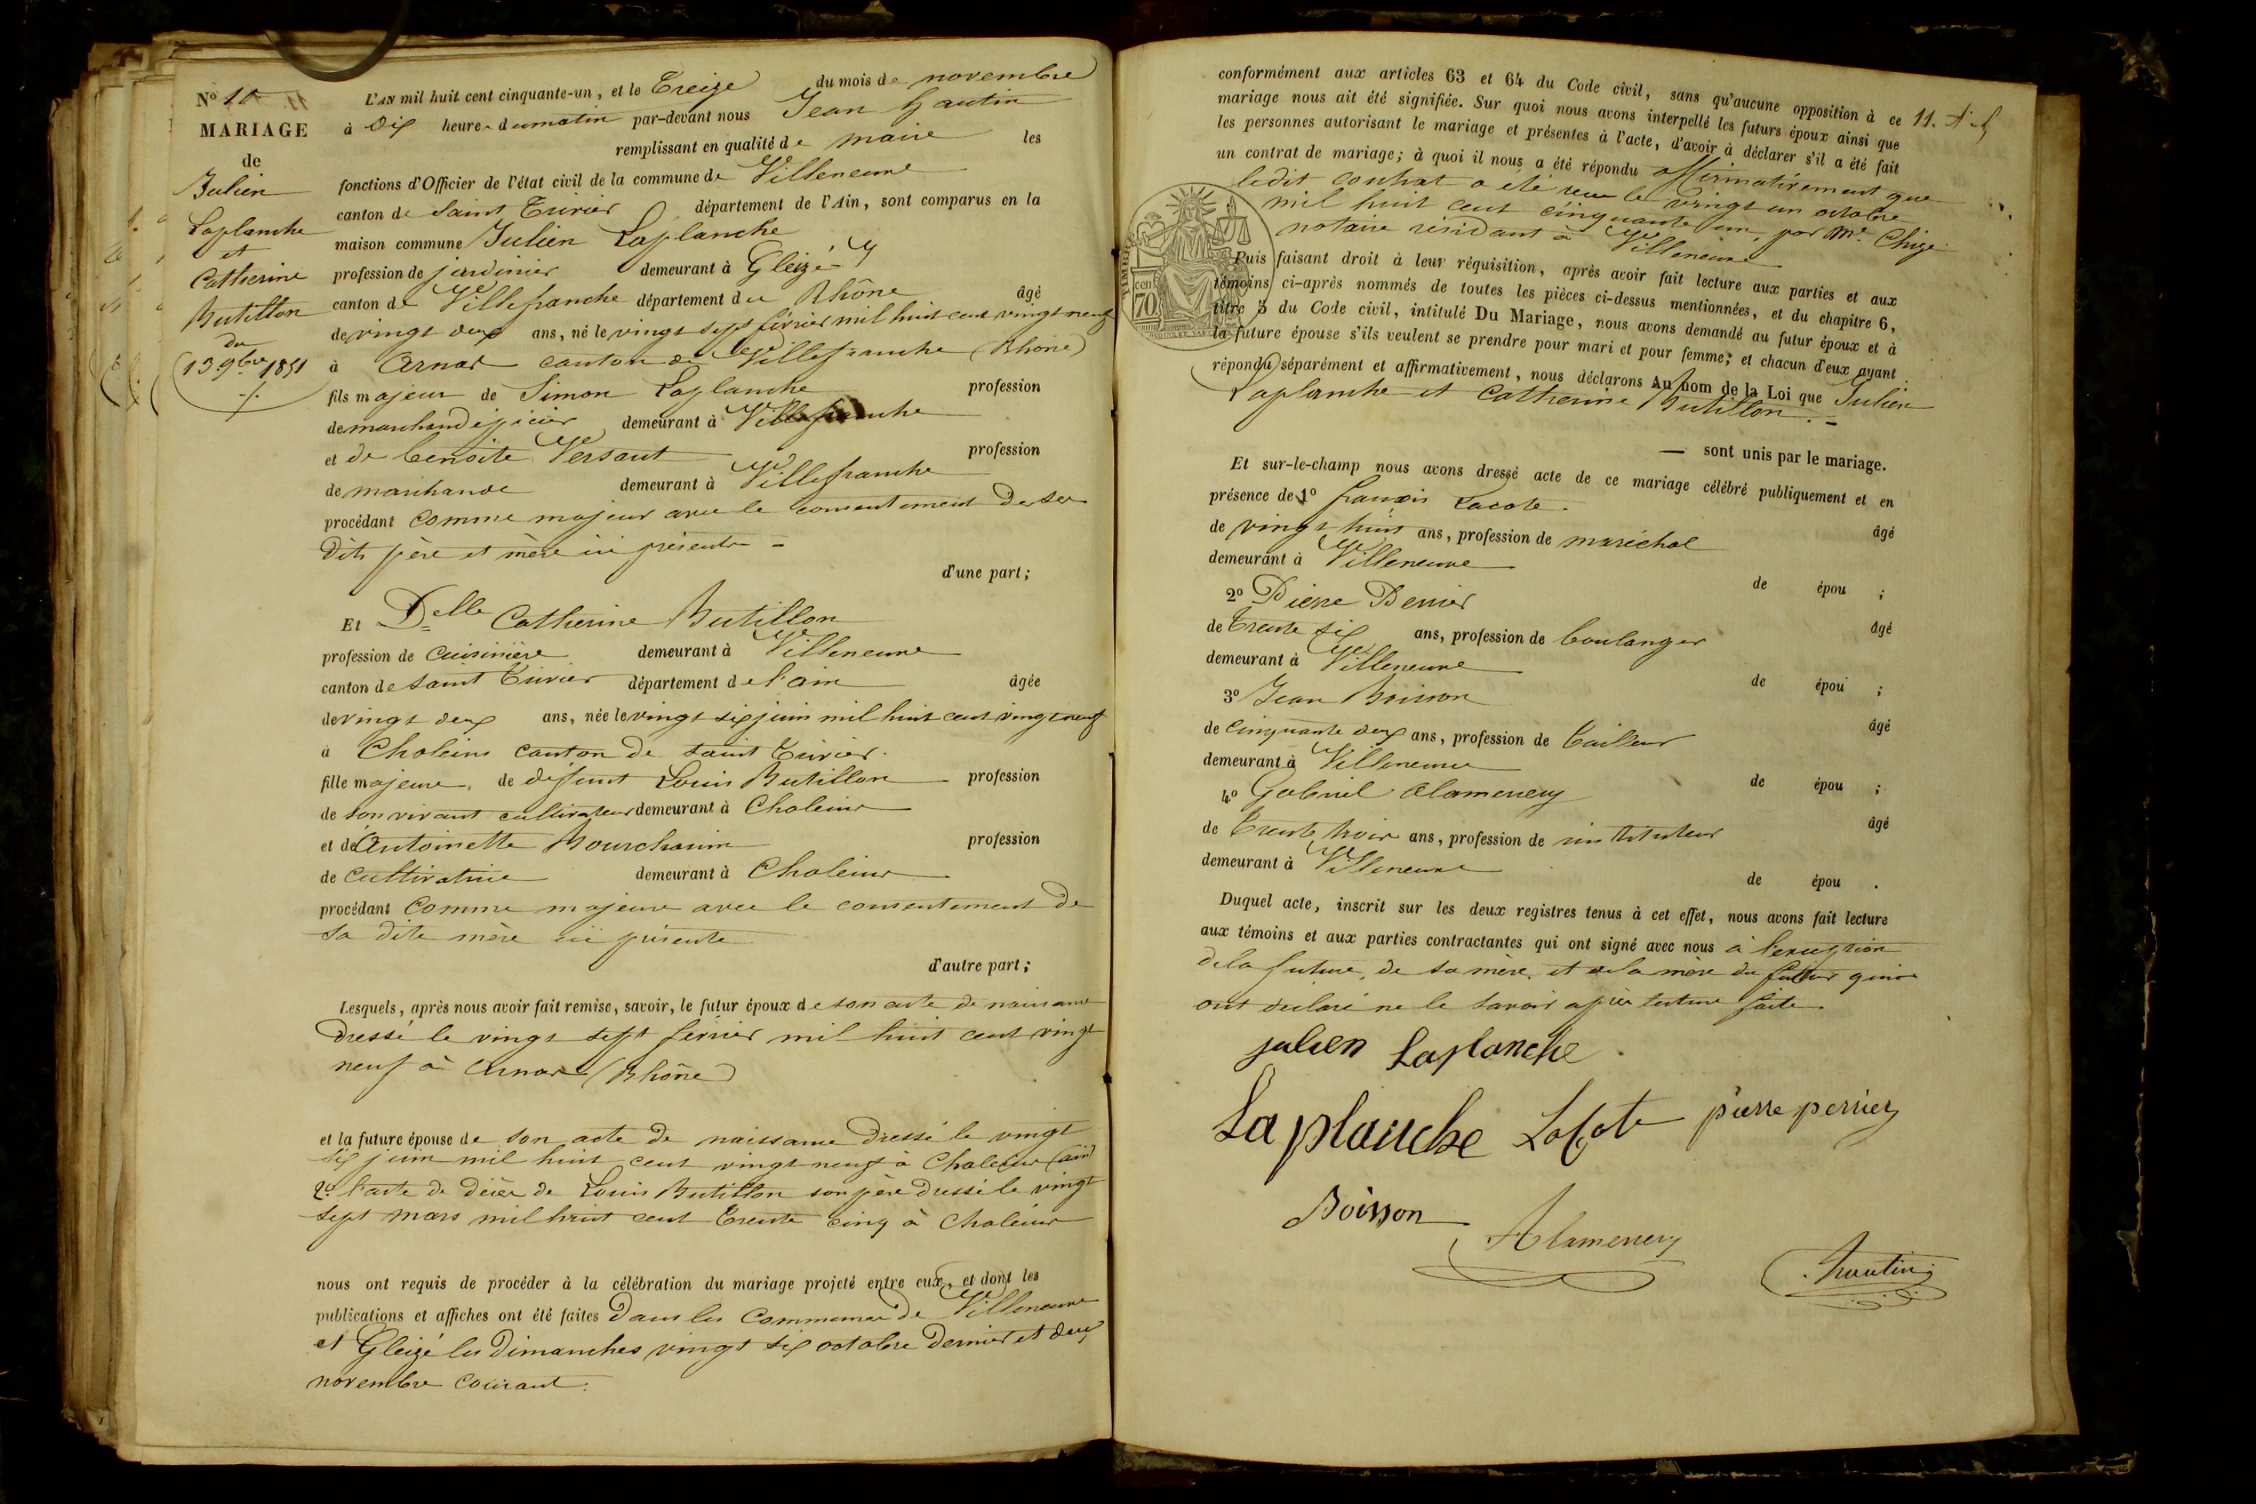 N° 10
MARIAGE
de
Julien
Laplanche
et
Catherine
Butillon
du
13 9bre 1851
L'AN mil huit cent cinquante-un, et le Treize du mois de novembre
à Dix heures du matin par-devant nous Jean Gautin
remplissant en qualité de maire les
fonctions d'Officier de l'état civil de la commune de Villeneuve
canton de Saint Trivier département de l'Ain, sont comparus en la
maison commune Julien Laplanche
profession de jardinier demeurant à Gleizé
canton de Villefranche département du Rhône âgé
de vingt deux ans, né le vingt sept février mil huit cent vingt neuf
à Arnas canton de Villefranche (Rhône)
fils majeur de Simon Laplanche profession
de marchand épicier demeurant à Villefranche
et de Benoite Versaut profession
de marchande demeurant à Villefranche
procédant comme majeur avec le consentement de ses
dits père et mère ici présents
d'une part;
Et Delle Catherine Butillon
profession de cuisinière demeurant à Villeneuve
canton de Saint Trivier département de l'ain âgée
de vingt deux ans, née le vingt six juin mil huit cent vingt neuf
à Choleins canton de saint Trivier.
fille majeure, de deffunt Louis Butillon profession
de son vivant cultivateur demeurant à Choleins
et de Antoinette Bourchanin profession
de cultivatrice demeurant à Choleins
procédant comme majeure avec le consentement de
sa dite mère ici présente
d'autre part;
Lesquels, après nous avoir fait remise, savoir, le futur époux de son acte de naissance
dressé le vingt sept février mil huit cent vingt
neuf à Arnas (Rhône)
et la future épouse de son acte de naissance dressé le vingt
six juin mil huit cent vingt neuf à Choleins (ain)
2° l'acte de décès de Louis Butillon son père dressé le vingt
sept mars mil huit cent trente cinq à Choleins
nous ont requis de procéder à la célébration du mariage projeté entre eux, et dont les
publications et affiches ont été faites dans les communes de Villeneuve
et Gleizé les dimanches vingt six octobre dernier et deux
novembre courant.
11.
conformément aux articles 63 et 64 du Code civil, sans qu'aucune opposition à ce
mariage nous ait été signifiée. Sur quoi nous avons interpellé les futurs époux ainsi que
les personnes autorisant le mariage et présentes à l'acte, d'avoir à déclarer s'il a été fait
un contrat de mariage; à quoi il nous a été répondu affirmativement que
ledit contrat a été reçu le vingt un octobre
mil huit cent cinquante un, par Me Chize
notaire résidant à Villeneuve
TIMBRE
70 cen
Puis faisant droit à leur réquisition, après avoir fait lecture aux parties et aux
témoins ci-après nommés de toutes les pièces ci-dessus mentionnées, et du chapitre 6,
titre 5 du Code civil, intitulé Du Mariage, nous avons demandé au futur époux et à
la future épouse s'ils veulent se prendre pour mari et pour femme; et chacun d'eux ayant
répondu séparément et affirmativement, nous déclarons Au nom de la Loi que Julien
Laplanche et Catherine Butillon
— sont unis par le mariage.
Et sur-le-champ nous avons dressé acte de ce mariage célébré publiquement et en
présence de 1° françois Lacote
de vingt huit ans, profession de maréchal âgé
demeurant à Villeneuve
de épou ;
2° Pierre Perrier
de Trente six ans, profession de boulanger âgé
demeurant à Villeneuve
de épou ;
3° Jean Boisson
de cinquante deux ans, profession de tailleur âgé
demeurant à Villeneuve
de épou ;
4° Gabriel Alamercery
de Trente trois ans, profession de instituteur âgé
demeurant à Villeneuve
de épou .
Duquel acte, inscrit sur les deux registres tenus à cet effet, nous avons fait lecture
aux témoins et aux parties contractantes qui ont signé avec nous à l'exception
de la future, de sa mère, et de la mère du futur qui
ont déclaré ne le savoir après lecture faite.
julien Laplanche
Laplanche Lacote pierre perrier
Boisson
Alamercery
Gautin